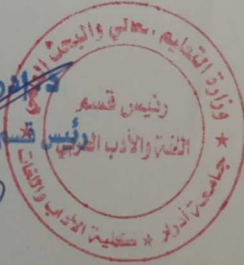 وزارة التعليم العالي والبحث العلمي
رئيس قسم
اللغة والأدب العربي
رئيس قسم
جامعة أدرار * كلية الآداب واللغات